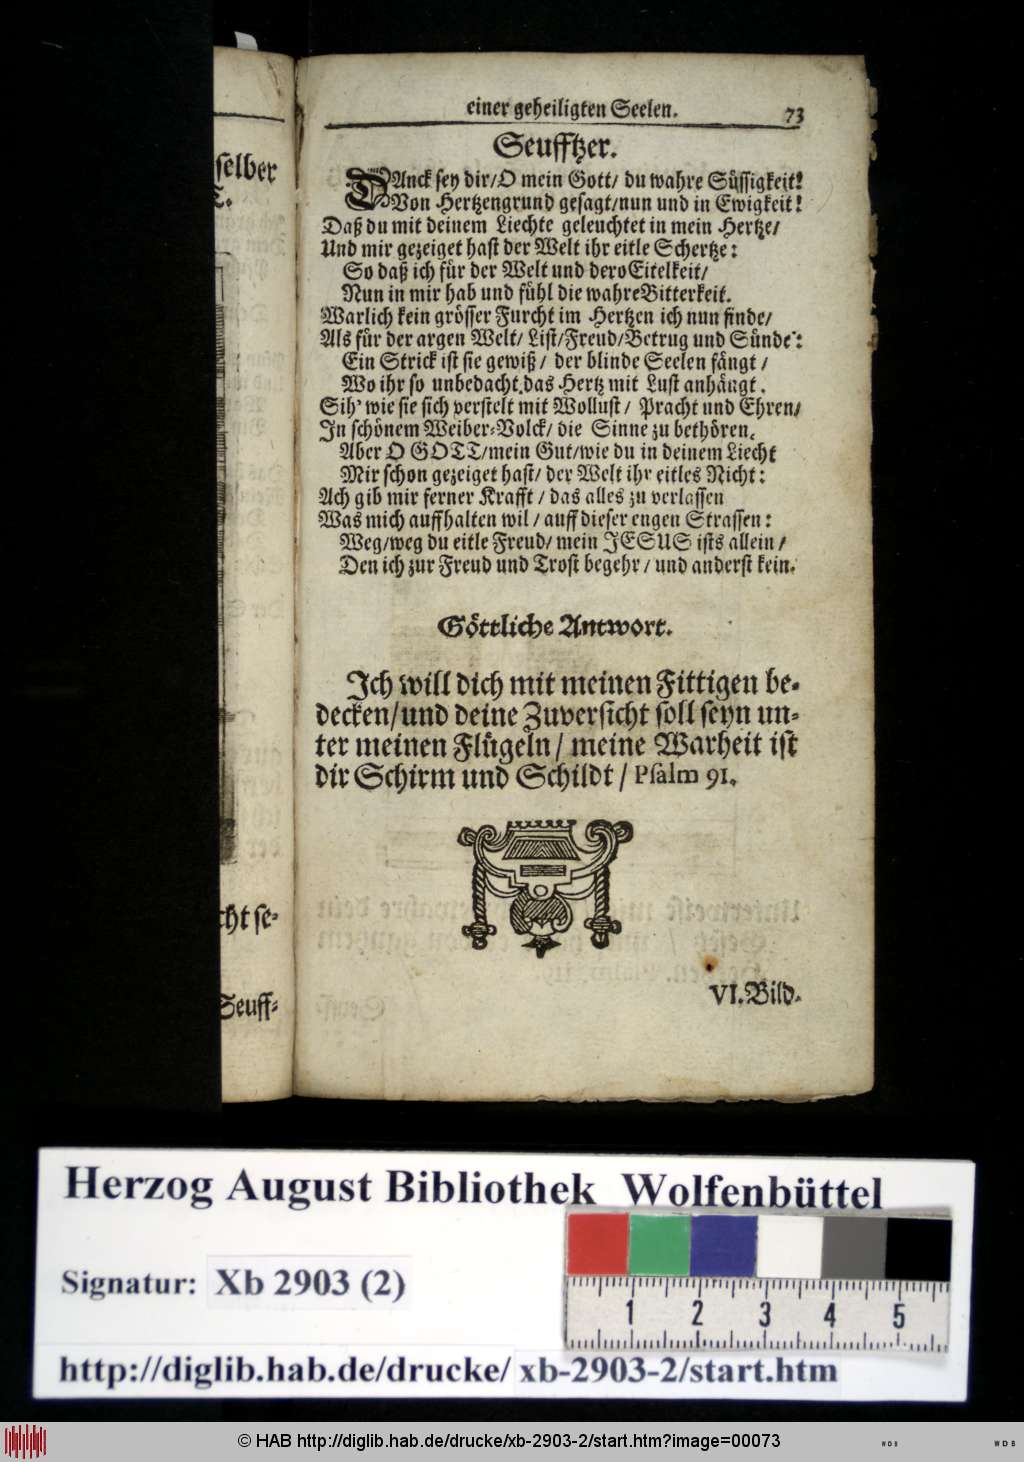 selber
T.
cht se-
Seuff-
einer geheiligten Seelen. 73
Seufftzer.
DAnck sey dir/ O mein Gott/ du wahre Süssigkeit!
Von Hertzengrund gesagt/ nun und in Ewigkeit!
Daß du mit deinem Liechte geleuchtet in mein Hertze/
Und mir gezeiget hast der Welt ihr eitle Schertze:
So daß ich für der Welt und dero Eitelkeit/
Nun in mir hab und fühl die wahre Bitterkeit.
Warlich kein grösser Furcht im Hertzen ich nun finde/
Als für der argen Welt/ List/ Freud/ Betrug und Sünde:
Ein Strick ist sie gewiß/ der blinde Seelen fängt/
Wo ihr so unbedacht das Hertz mit Lust anhängt.
Sih' wie sie sich verstelt mit Wollust/ Pracht und Ehren/
In schönem Weiber-Volck/ die Sinne zu bethören.
Aber O GOTT/ mein Gut/ wie du in deinem Liecht
Mir schon gezeiget hast/ der Welt ihr eitles Nicht:
Ach gib mir ferner Krafft/ das alles zu verlassen
Was mich auffhalten wil/ auff dieser engen Strassen:
Weg/ weg du eitle Freud/ mein JESUS ists allein/
Den ich zur Freud und Trost begehr/ und anderst kein.
Göttliche Antwort.
Ich will dich mit meinen Fittigen be-
decken/ und deine Zuversicht soll seyn un-
ter meinen Flügeln/ meine Warheit ist
dir Schirm und Schildt/ Psalm 91.
VI. Bild-
Herzog August Bibliothek Wolfenbüttel
Signatur: Xb 2903 (2)
1 2 3 4 5
http://diglib.hab.de/drucke/ xb-2903-2/start.htm
© HAB http://diglib.hab.de/drucke/xb-2903-2/start.htm?image=00073
WDB WDB